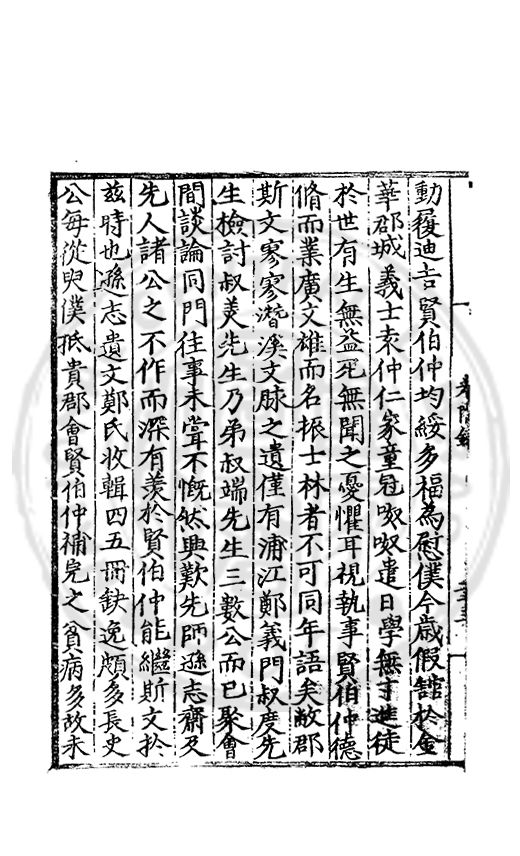 動履迪吉賢伯仲均綏多福為慰僕今歲假館於金
華郡城義士袁仲仁家童冠呶呶遣日學無寸進徒
於世有生無益死無聞之憂懼耳視執事賢伯仲德
脩而業廣文雄而名振士林者不可同年語矣敝郡
斯文寥寥潛溪文脉之遺僅有浦江鄭義門叔度先
生檢討叔美先生乃弟叔端先生三數公而已聚會
間談論同門往事未嘗不慨然興歎先師遜志齋及
先人諸公之不作而深有羨於賢伯仲能繼斯文於
兹時也遜志遺文鄭氏收輯四五冊缺逸頗多長史
公每從臾僕抵貴郡會賢伯仲補完之貧病多故未